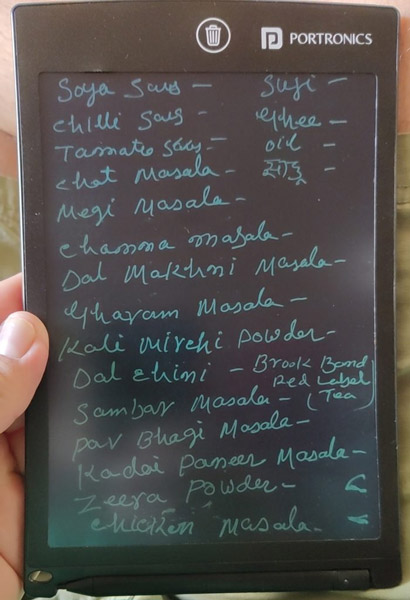 PORTRONICS
Soya Saus - Suji -
Chilli Saus - Ghee -
Tammato Saus - oil -
Chat Masala -
Megi Masala -
Chamma masala -
Dal Makhni Masala -
Gharam Masala -
Kali Mirchi Powder -
Dal Chini - Brook Band
Red Label
Sambar Masala - (Tea)
Pav Bhagi Masala -
Kadai Paneer Masala -
Zeera Powder -
Chicken Masala -